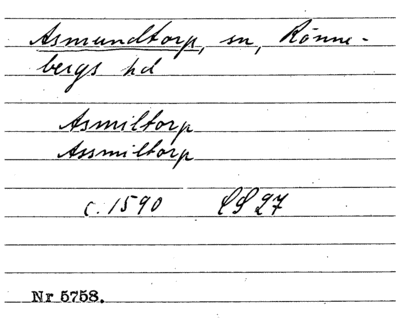 Asmundtorp, sn, Rönne-
bergs hd
Asmiltorp
Assmiltorp
c. 1590 LS 27
Nr 5758.